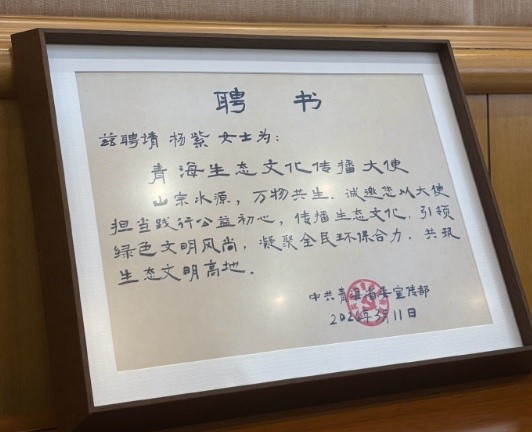 聘 书
兹聘请 杨紫 女士为：
青海生态文化传播大使
山宗水源，万物共生。诚邀您以大使
担当践行公益初心，传播生态文化，引领
绿色文明风尚，凝聚全民环保合力，共
生态文明高地。
中共青海省委宣传部
2026年3月11日